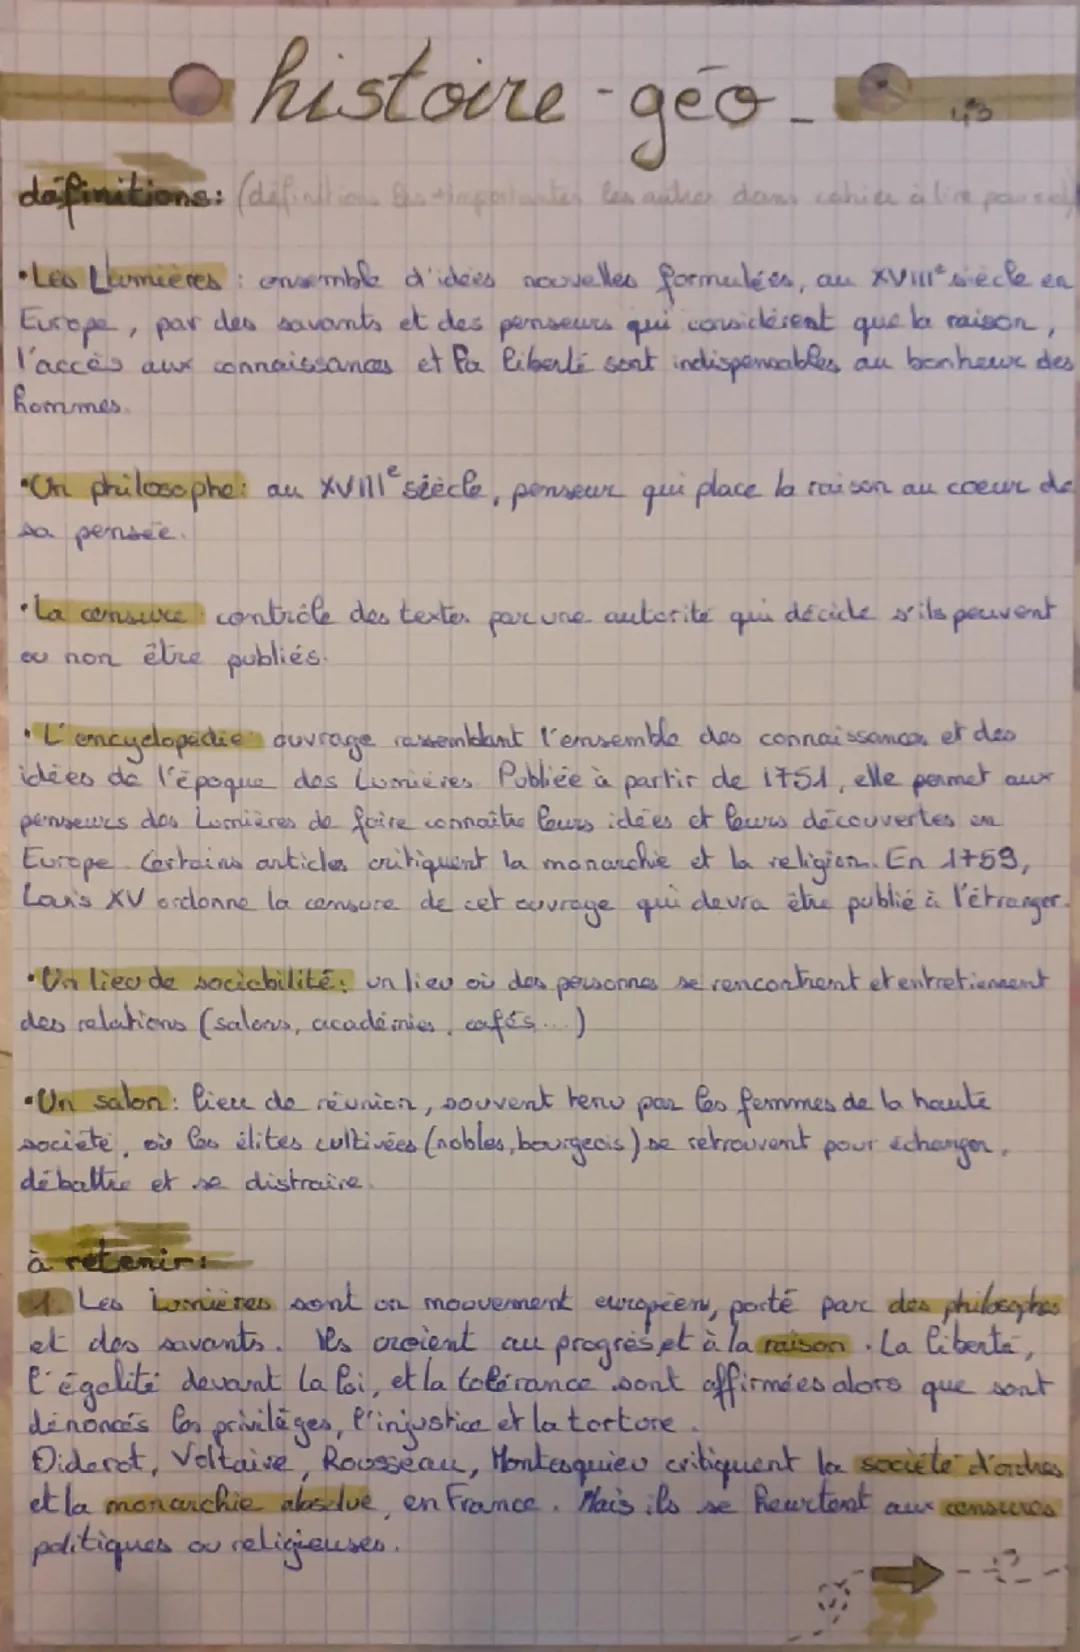 histoire-géo_
définitions: (définitions les + importantes les autres dans cahier à lire
• Les Lumières : ensemble d'idées nouvelles formulées, au XVIIIe siècle en
Europe, par des savants et des penseurs qui considèrent que la raison,
l'accès aux connaissances et la liberté sont indispensables au bonheur des
hommes.
• Un philosophe: au XVIIIe siècle, penseur qui place la raison au coeur de
sa pensée.
• La censure : contrôle des textes par une autorité qui décide s'ils peuvent
ou non être publiés.
• L'encyclopédie : ouvrage rassemblant l'ensemble des connaissances et des
idées de l'époque des Lumières. Publiée à partir de 1751, elle permet aux
penseurs des Lumières de faire connaître leurs idées et leurs découvertes en
Europe. Certains articles critiquent la monarchie et la religion. En 1759,
Louis XV ordonne la censure de cet ouvrage qui devra être publié à l'étranger.
• Un lieu de sociabilité: un lieu où des personnes se rencontrent et entretiennent
des relations (salons, académies, cafés...)
• Un salon: lieu de réunion, souvent tenu par les femmes de la haute
société, où les élites cultivées (nobles, bourgeois) se retrouvent pour échanger,
débattre et se distraire.
à retenir:
1. Les Lumières sont un mouvement européen, porté par des philosophes
et des savants. Ils croient au progrès et à la raison. La liberté,
l'égalité devant la loi, et la tolérance sont affirmées alors que sont
dénoncés les privilèges, l'injustice et la torture.
Diderot, Voltaire, Rousseau, Montesquieu critiquent la société d'ordres
et la monarchie absolue, en France. Mais ils se heurtent aux censures
politiques ou religieuses.